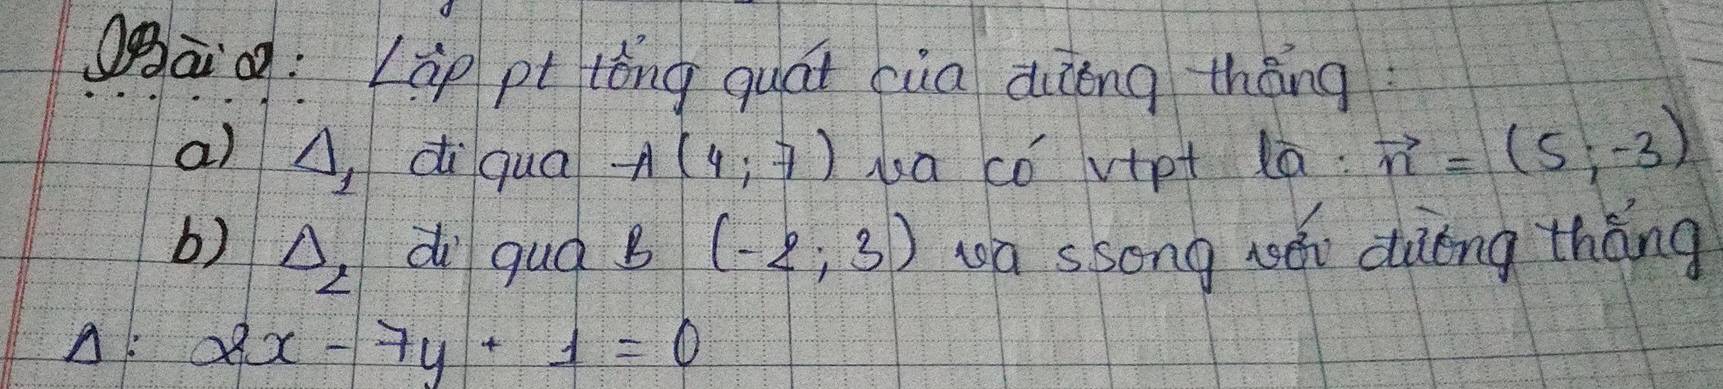 Bài 2: Lập pt tổng quát của đường thẳng:
a) Δ₁ đi qua A (4; 7) và có vtpt là: n⃗ = (5; -3)
b) Δ₂ đi qua B (-2; 3) và ssong với đường thẳng
Δ: 2x - 7y + 1 = 0